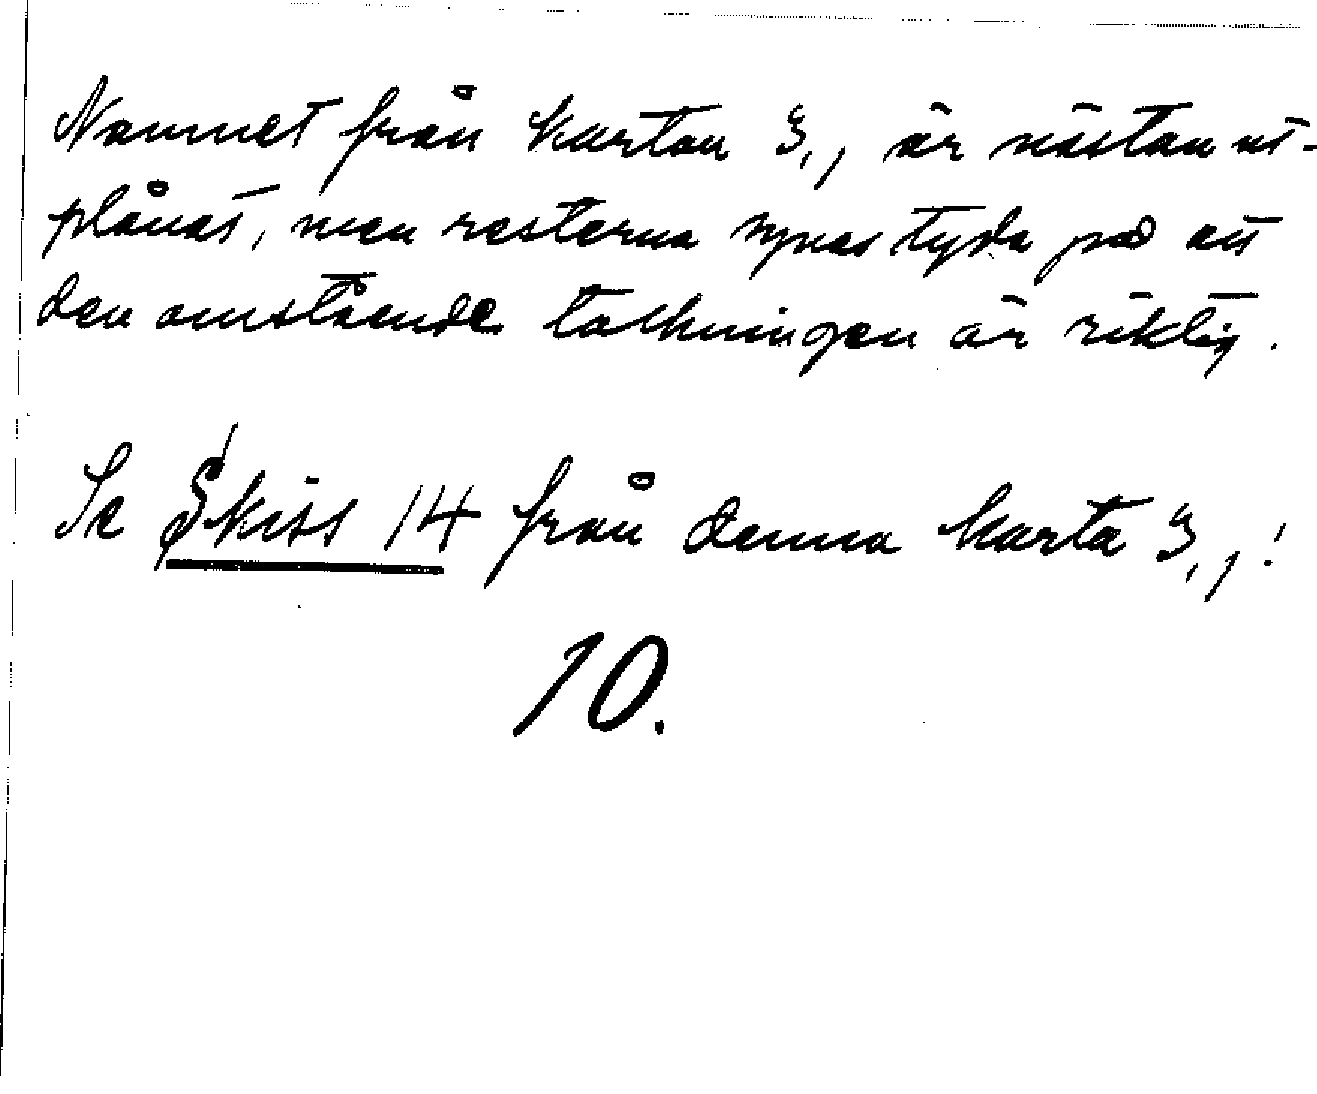 Namnet från kartan 3,, är nästan ut-
plånat, men resterna synas tyda på att
den omstående tolkningen är riktig.
Se Skiss 14 från denna karta 3,,!
10.